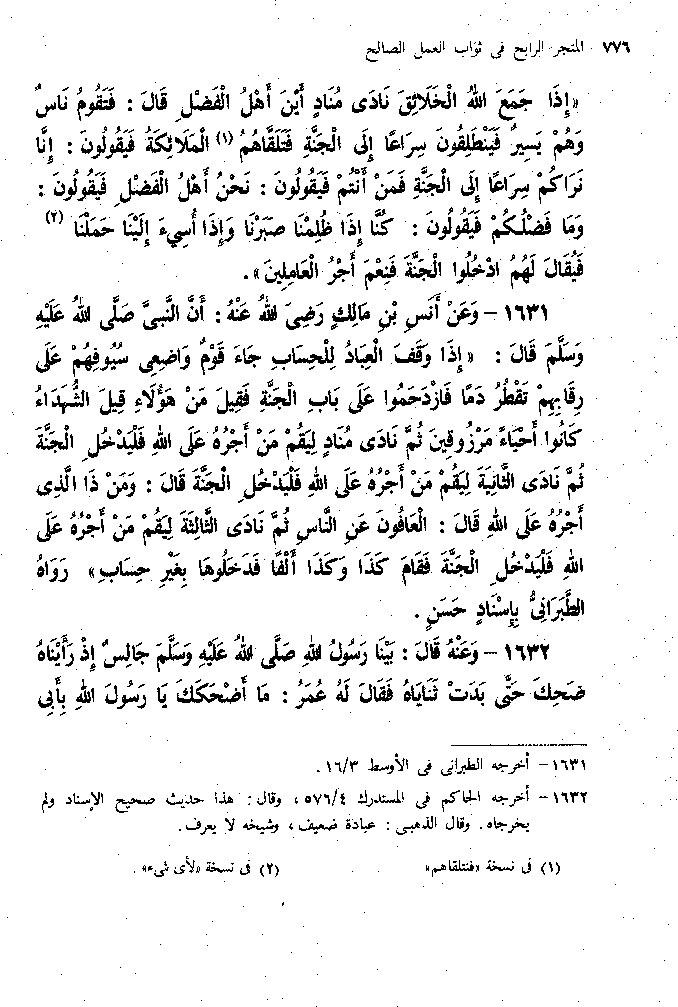 ٧٧٦ المتجر الرابح فى ثواب العمل الصالح
«إِذَا جَمَعَ اللهُ الْخَلَائِقَ نَادَى مُنَادٍ أَيْنَ أَهْلُ الْفَضْلِ قَالَ : فَتَقُومُ نَاسٌ
وَهُمْ يَسِيرٌ فَيَنْطَلِقُونَ سِرَاعًا إِلَى الْجَنَّةِ فَتَلَقَّاهُمُ (١) الْمَلَائِكَةُ فَيَقُولُونَ : إِنَّا
نَرَاكُمْ سِرَاعًا إِلَى الْجَنَّةِ فَمَنْ أَنْتُمْ فَيَقُولُونَ : نَحْنُ أَهْلُ الْفَضْلِ فَيَقُولُونَ :
وَمَا فَضْلُكُمْ فَيَقُولُونَ : كُنَّا إِذَا ظُلِمْنَا صَبَرْنَا وَإِذَا أُسِيءَ إِلَيْنَا حَمَلْنَا (٢)
فَيُقَالَ لَهُمُ ادْخُلُوا الْجَنَّةَ فَنِعْمَ أَجْرُ الْعَامِلِينَ» .
١٦٣١ – وَعَنْ أَنَسِ بْنِ مَالِكٍ رَضِىَ اللهُ عَنْهُ : أَنَّ النَّبِىَّ صَلَّى اللهُ عَلَيْهِ
وَسَلَّمَ قَالَ : «إِذَا وَقَفَ الْعِبَادُ لِلْحِسَابِ جَاءَ قَوْمٌ وَاضِعِى سُيُوفِهِمْ عَلَى
رِقَابِهِمْ تَقْطُرُ دَمًا فَازْدَحَمُوا عَلَى بَابِ الْجَنَّةِ فَقِيلَ مَنْ هَؤُلَاءِ قِيلَ الشُّهَدَاءُ
كَانُوا أَحْيَاءً مَرْزُوقِينَ ثُمَّ نَادَى مُنَادٍ لِيَقُمْ مَنْ أَجْرُهُ عَلَى اللهِ فَلْيَدْخُلِ الْجَنَّةَ
ثُمَّ نَادَى الثَّانِيَةَ لِيَقُمْ مَنْ أَجْرُهُ عَلَى اللهِ فَلْيَدْخُلِ الْجَنَّةَ قَالَ : وَمَنْ ذَا الَّذِى
أَجْرُهُ عَلَى اللهِ قَالَ : الْعَافُونَ عَنِ النَّاسِ ثُمَّ نَادَى الثَّالِثَةَ لِيَقُمْ مَنْ أَجْرُهُ عَلَى
اللهِ فَلْيَدْخُلِ الْجَنَّةَ فَقَامَ كَذَا وَكَذَا أَلْفًا فَدَخَلُوهَا بِغَيْرِ حِسَابٍ» رَوَاهُ
الطَّبَرَانِىُّ بِإِسْنَادٍ حَسَنٍ .
١٦٣٢ – وَعَنْهُ قَالَ : بَيْنَا رَسُولُ اللهِ صَلَّى اللهُ عَلَيْهِ وَسَلَّمَ جَالِسٌ إِذْ رَأَيْنَاهُ
ضَحِكَ حَتَّى بَدَتْ ثَنَايَاهُ فَقَالَ لَهُ عُمَرُ : مَا أَضْحَكَكَ يَا رَسُولَ اللهِ بِأَبِى
١٦٣١ – أخرجه الطبرانى فى الأوسط ١٦/٣ .
١٦٣٢ – أخرجه الحاكم فى المستدرك ٥٧٦/٤ ، وقال : هذا حديث صحيح الإسناد ولم
يخرجاه . وقال الذهبى : عبادة ضعيف ، وشيخه لا يعرف .
(١) فى نسخة «فتتلقاهم» (٢) فى نسخة «لأى شىء» .